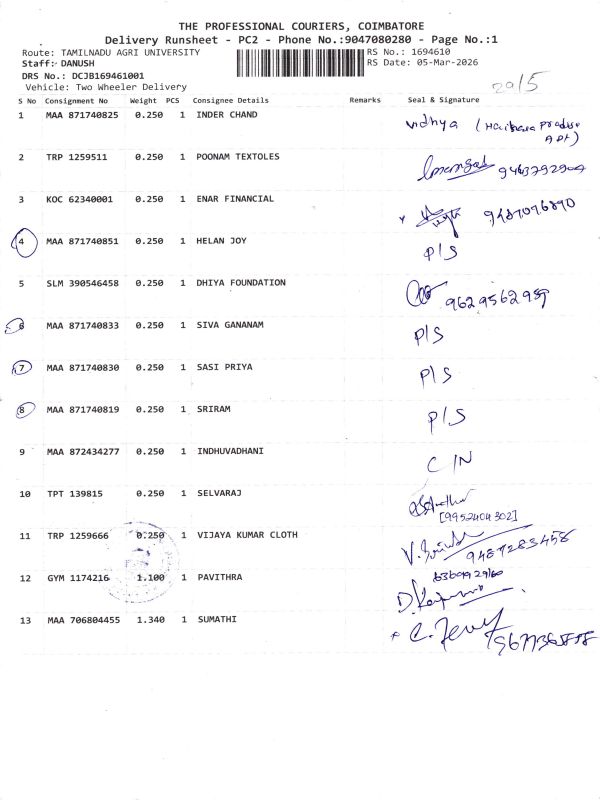 THE PROFESSIONAL COURIERS, COIMBATORE
Delivery Runsheet - PC2 - Phone No.:9047080280 - Page No.:1
Route: TAMILNADU AGRI UNIVERSITY RS No.: 1694610
Staff: DANUSH RS Date: 05-Mar-2026
DRS No.: DCJB169461001
Vehicle: Two Wheeler Delivery
2015
S No Consignment No Weight PCS Consignee Details Remarks Seal & Signature
1 MAA 871740825 0.250 1 INDER CHAND
vidhya
2 TRP 1259511 0.250 1 POONAM TEXTOLES
3 KOC 62340001 0.250 1 ENAR FINANCIAL
4 MAA 871740851 0.250 1 HELAN JOY P/S
5 SLM 390546458 0.250 1 DHIYA FOUNDATION
6 MAA 871740833 0.250 1 SIVA GANANAM P/S
7 MAA 871740830 0.250 1 SASI PRIYA P/S
8 MAA 871740819 0.250 1 SRIRAM P/S
9 MAA 872434277 0.250 1 INDHUVADHANI C/N
10 TPT 139815 0.250 1 SELVARAJ
[9952404302]
11 TRP 1259666 0.250 1 VIJAYA KUMAR CLOTH
9487283458
12 GYM 1174216 1.100 1 PAVITHRA
13 MAA 706804455 1.340 1 SUMATHI